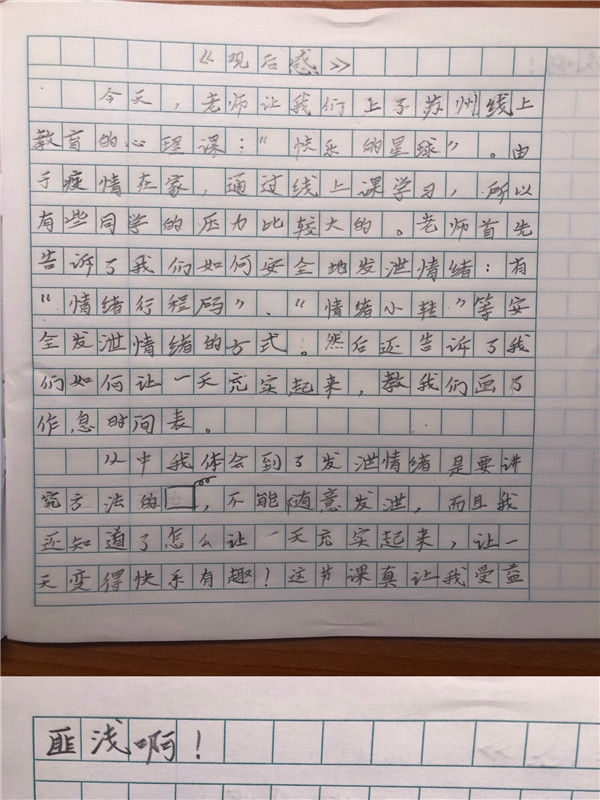 《观后感》
今天，老师让我们上了苏州线上
教育的心理课：“快乐的星球”。由
于疫情在家，通过线上课学习，所以
有些同学的压力比较大的。老师首先
告诉了我们如何安全地发泄情绪：有
“情绪行程码”、“情绪小鞋”等安
全发泄情绪的方式。然后还告诉了我
们如何让一天充实起来，教我们画了
作息时间表。
从中我体会到了发泄情绪是要讲
究方法的，不能随意发泄，而且我
还知道了怎么让一天充实起来，让一
天变得快乐有趣！这节课真让我受益
匪浅啊！